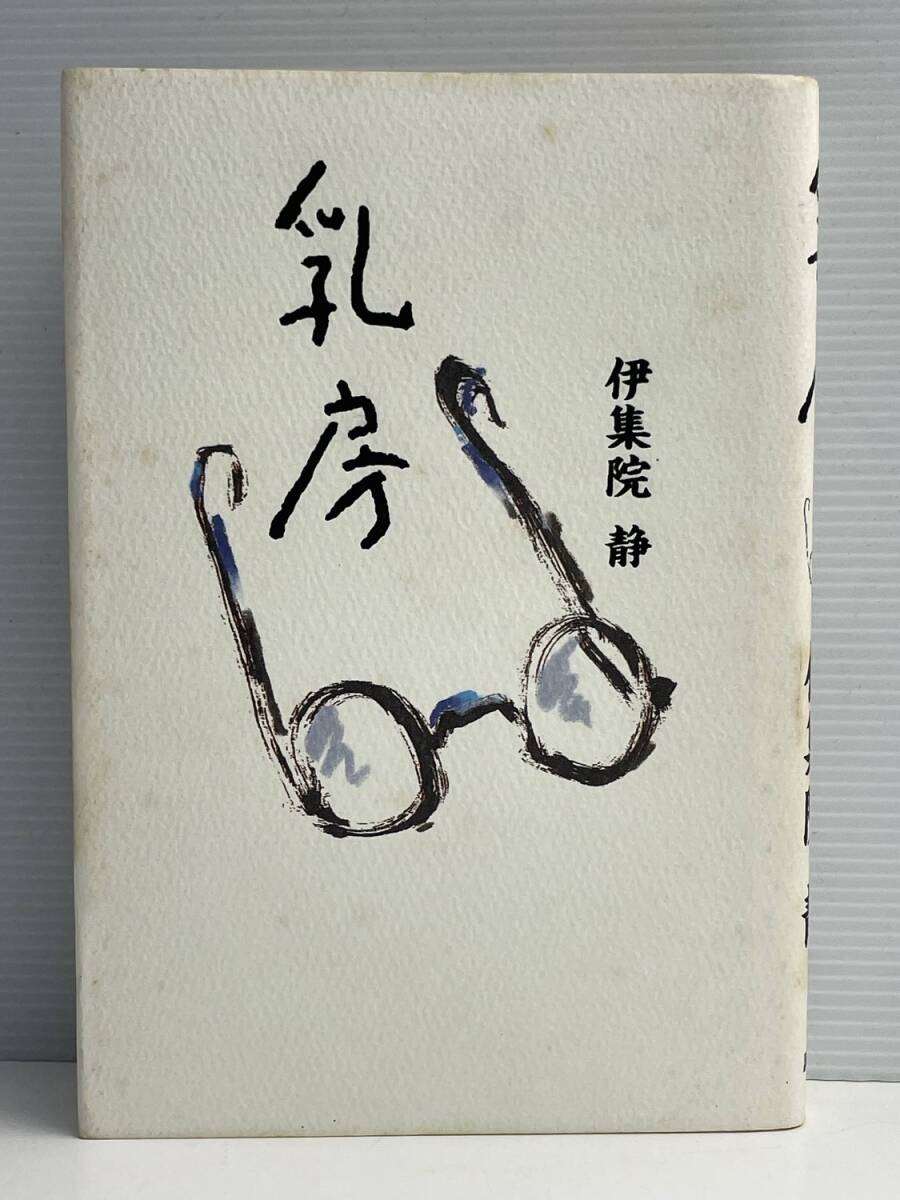 乳房
伊集院 静